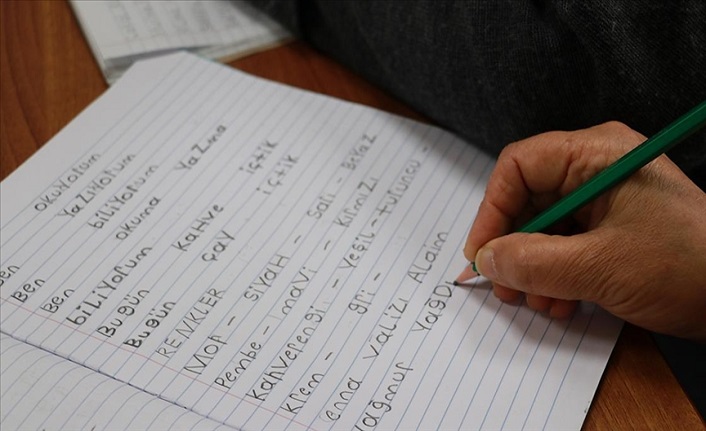 okuyorum
Ben yazıyorum
Ben biliyorum
Ben okuma yazma
biliyorum
Bugün kahve içtik
Bugün çay içtik
RENKLER
Mor - siyah - sarı - Beyaz
Pembe - mavi - kırmızı
kahverengi - yeşil - turuncu -
krem - gri -
valizi Alaım
yağmur yağDı